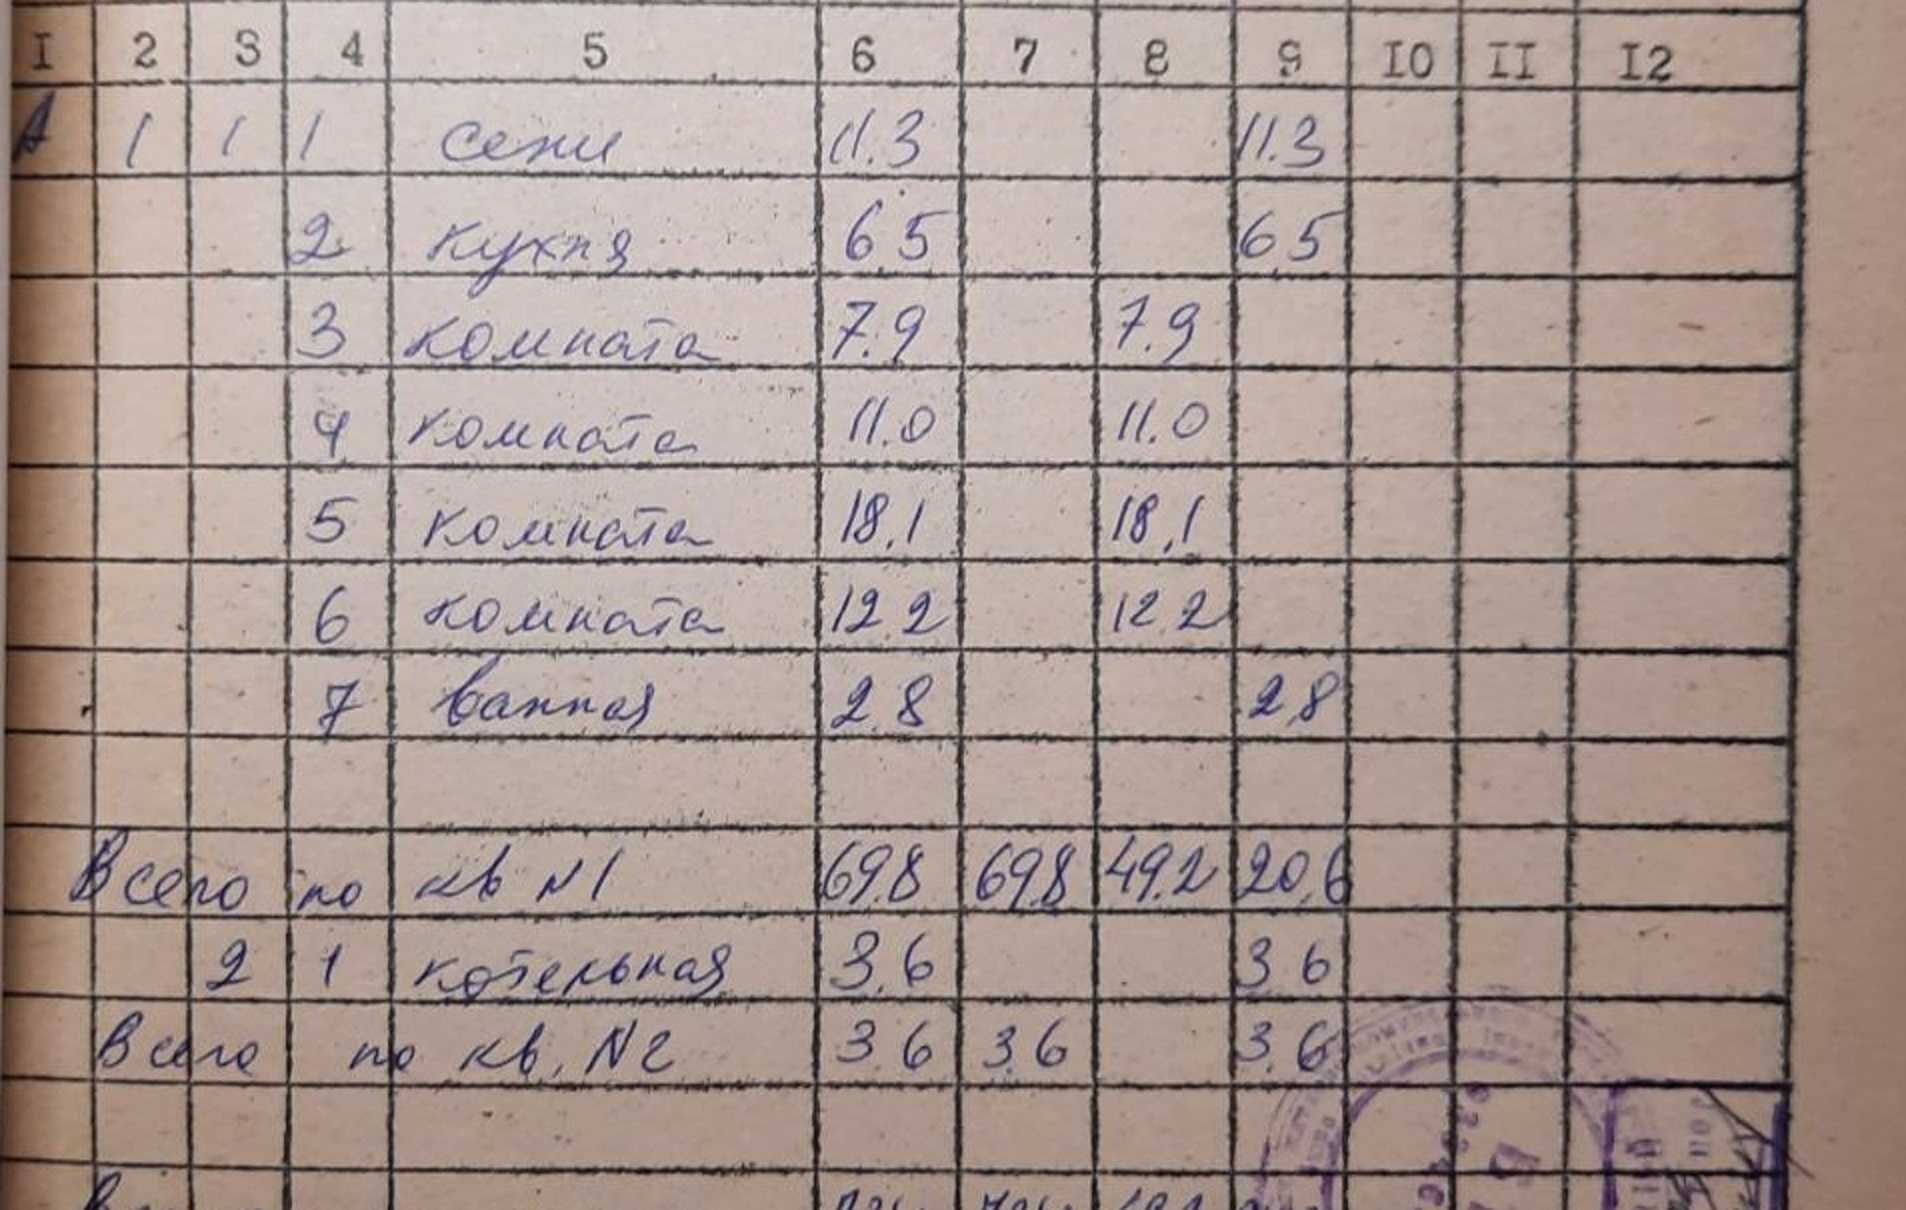 I 2 3 4 5 6 7 8 9 IO II I2
А 1 1 1 сени 11.3 11.3
2 кухня 6.5 6.5
3 комната 7.9 7.9
4 комната 11.0 11.0
5 комната 18.1 18.1
6 комната 12.2 12.2
7 ванная 2.8 2.8
Всего по кв N1 69.8 69.8 49.2 20.6
2 1 котельная 3.6 3.6
Всего по кв. N2 3.6 3.6 3.6